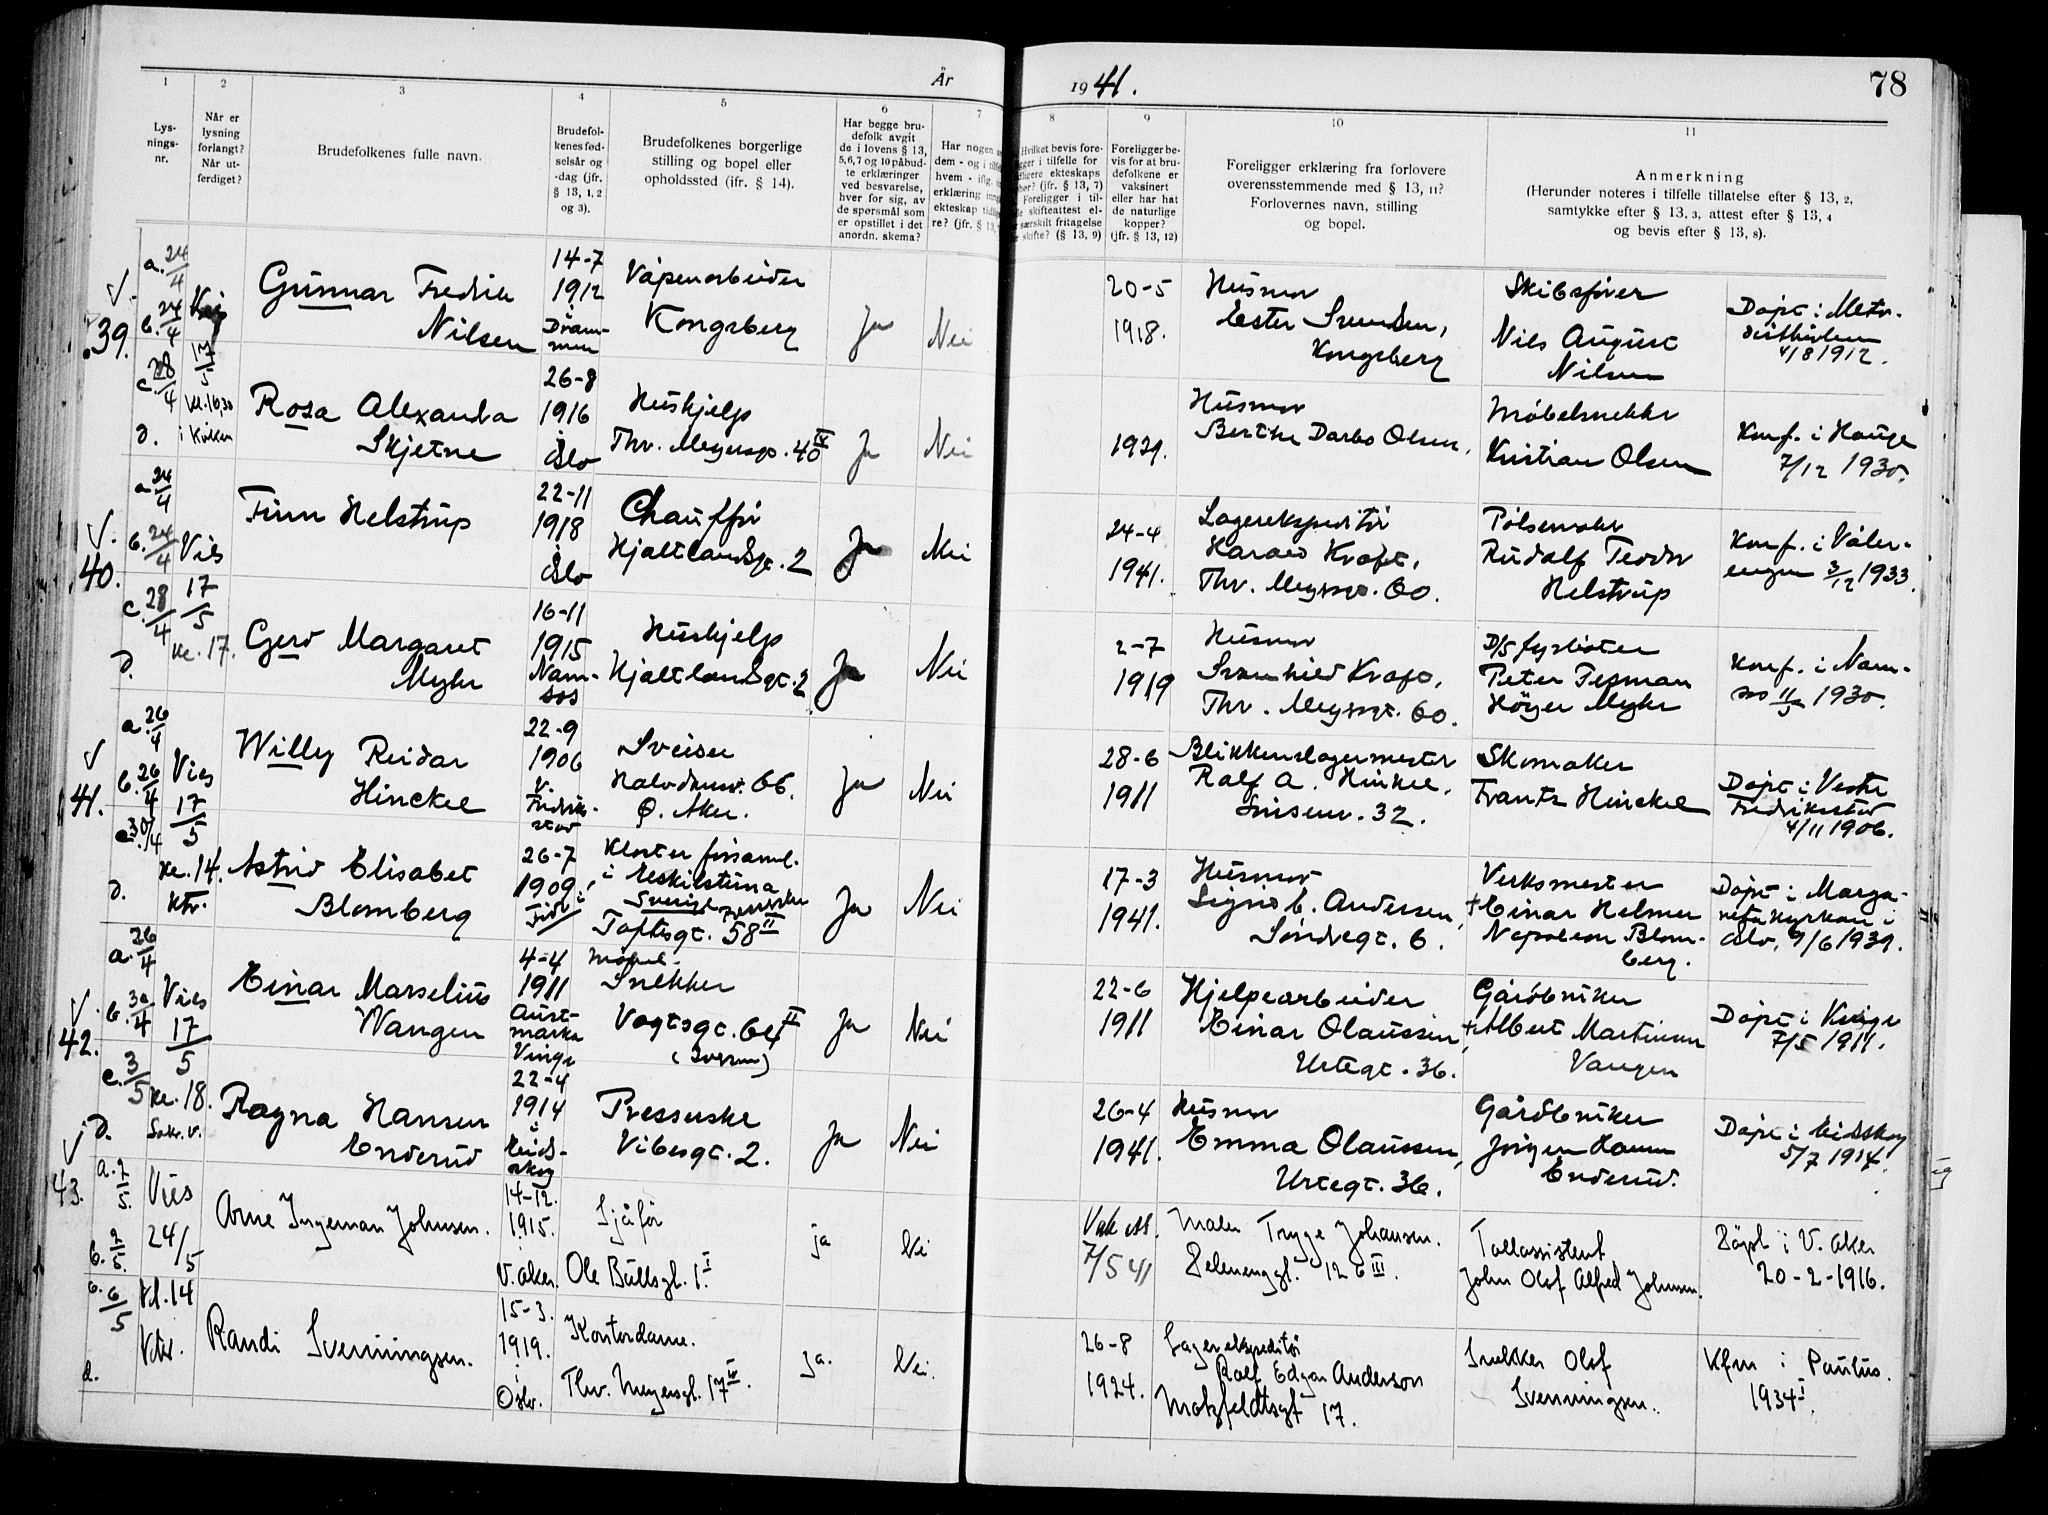 År 1941.
78
1
2
3
4
5
6
7
8
9
10
11
Lys-
nings-
nr.
Når er
lysning
forlangt?
Når ut-
ferdiget?
Brudefolkenes fulle navn.
Brudefol-
kenes fød-
selsår og
-dag (jfr.
§ 13, 1, 2
og 3).
Brudefolkenes borgerlige
stilling og bopel eller
opholdssted (ifr. § 14).
Har begge bru-
defolk avgit
de i lovens § 13,
5,6,7 og 10 påbud-
te erklæringer
ved besvarelse,
hver for sig, av
de spørsmål som
er opstillet i det
anordn. skema?
Har nogen
dem - og i
hvem - iflg.
erklæring
ekteskap
re? (jfr. § 13,
Hvilket bevis fore-
ligger i tilfelle for
ekteskaps
(jfr. § 13, 7)
Foreligger i til-
skifteattest el-
særskilt fritagelse
skifte? (§ 13, 9)
Foreligger be-
vis for at bru-
defolkene er
vaksinert
eller har hat
de naturlige
kopper?
(jfr. § 13, 12)
Foreligger erklæring fra forlovere
overensstemmende med § 13, 11?
Forlovernes navn, stilling
og bopel.
Anmerkning
(Herunder noteres i tilfelle tillatelse efter § 13, 2,
samtykke efter § 13, 3, attest efter § 13, 4
og bevis efter § 13, 8).
39.
a. 24/4
b. 24/4
c. 28/4
d.
17/5
Kl. 16,30
i Kirken
Gunnar Fredrik
Nilsen
14-7
1912
i
Dram-
men
Våpenarbeider
Kongsberg
Ja
Nei
20-5
1918.
Husmor
Ester Svendsen,
Kongsberg
Skibsfører
Nils August
Nilsen
Døpt i Meto-
distkirken
4/8 1912.
Rosa Alexandra
Skjetne
26-8
1916
i
Oslo
Hushjelp
Thv. Meyersgt. 40 IV
Ja
Nei
1921.
Husmor
Berthe Darbo Olsen,
Møbelsnekker
Kristian Olsen
Konf. i Hauge
7/12 1930.
40.
a. 24/4
b. 24/4
c. 28/4
d.
Vies
17/5
Kl. 17.
Finn Helstrup
22-11
1918
i
Oslo
Chauffør
Hjaltlandsgt. 2
Ja
Nei
24-4
1941.
Lagerekspeditør
Harald Kraft,
Thv. Meyersgt. 60.
Pølsemaker
Rudolf Teodor
Helstrup
Konf. i Våler-
engen 3/12 1933.
Gerd Margaret
Myhr
16-11
1915
Nam-
sos
Hushjelp
Hjaltlandsgt. 2
Ja
Nei
2-7
1919
Husmor
Svanhild Kraft,
Thv. Meyersgt. 60.
D/S fyrbøter
Peter Tesman
Höyer Myhr
Konf. i Nam-
sos 11/5 1930.
41.
a. 26/4
b. 26/4
c. 30/4
d.
Vies
17/5
Kl. 14.
Ktr.
Willy Reidar
Hinckel
22-9
1906
V.
Fredrik-
stad
Sveiser
Halvdansv. 66.
Ø. Aker.
Ja
Nei
28-6
1911
Blikkenslagermester
Ralf A. Hinkel,
32.
Skomaker
Frantz Hinckel
Døpt i Vestre
Fredrikstad
4/11 1906.
Astrid Elisabet
Blomberg
26-7
1909,
i
Kloster forsaml.
i Eskilstuna
Sverige
Toftesgt. 58 II
Ja
Nei
17-3
1941.
Husmor
Signe C. Andersen,
Søndregt. 6.
Verksmester
† Einar Helmer
Napoleon Blom-
berg.
Døpt i Marga-
reta kyrkan i
Oslo, 9/6 1939.
42.
a. 26/4
b. 30/4
c. 3/5
d.
Vies
17/5
Kl. 18.
Sakr. v.
Einar Marselius
Wangen
4-4
1911
Aust-
marka
Vinge
Møbel-
Snekker
Vogtsgt. 64 II
(Iversen)
Ja
Nei
22-6
1911
Hjelpearbeider
Einar Olaussen,
Urtegt. 36.
Gårdbruker
† Albert Martinsen
Vangen
Døpt i Vinge
7/5 1911.
Ragna Hansen
Enderud
22-4
1914
i
Eids-
skog
Presserske
Vibesgt. 2.
Ja
Nei
26-4
1941.
Husmor
Emma Olaussen,
Urtegt. 36.
Gårdbruker
Jørgen Hansen
Enderud.
Døpt i Eidskog
5/7 1914.
43.
a. 2/5.
b. 2/5.
c. 6/5
d.
Vies
24/5
Kl. 14
Ktr.
Arne Ingeman Johnsen.
14-12.
1915.
i
V. Aker.
Sjåfør
Ole Bullsgt. 1. I
ja
Nei
Vak att.
7/5 41
Maler Trygve Johansen.
Helenenggt. 12 b III.
Tollassistent
John Olof Alfred Johnsen.
Døpt i V. Aker
20-2-1916.
Randi Svenningsen.
15-3.
1919.
i
Oslo.
Kontordame.
Thv. Meyersgt. 17 IV.
ja.
Nei.
26-8
1924.
Lagerekspeditør
Rolf Edgar Anderson
Motzfeldtsgt 17.
Snekker Olof
Svenningsen.
Kfm i Paulus.
1934 I.